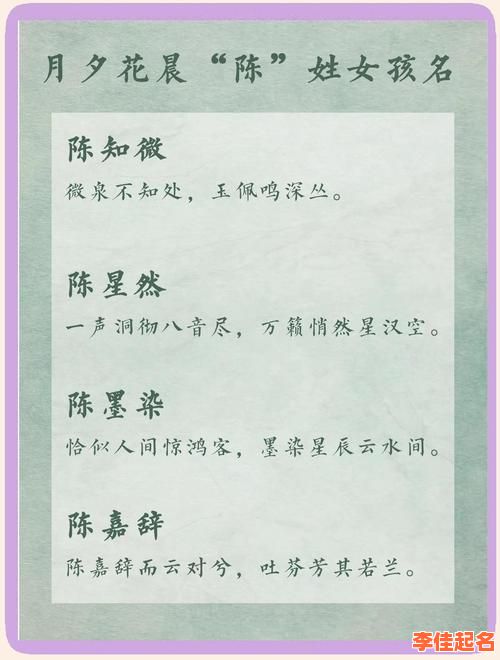 月夕花晨“陈”姓女孩名
陈知微
微泉不知处，玉佩鸣深丛。
陈星然
一声洞彻八音尽，万籁悄然星汉空。
陈墨染
恰似人间惊鸿客，墨染星辰云水间。
陈嘉辞
陈嘉辞而云对兮，吐芬芳其若兰。
李佳起名